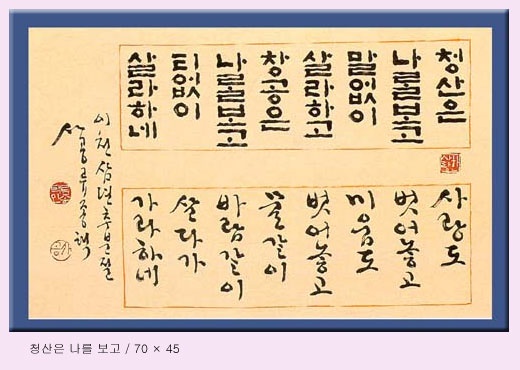 청산은
나를보고
말없이
살라하고
창공은
나를보고
티없이
살라하네
사랑도
벗어놓고
미움도
벗어놓고
물같이
바람같이
살다가
가라하네
이천삼년추분절
청산은 나를 보고 / 70 × 45